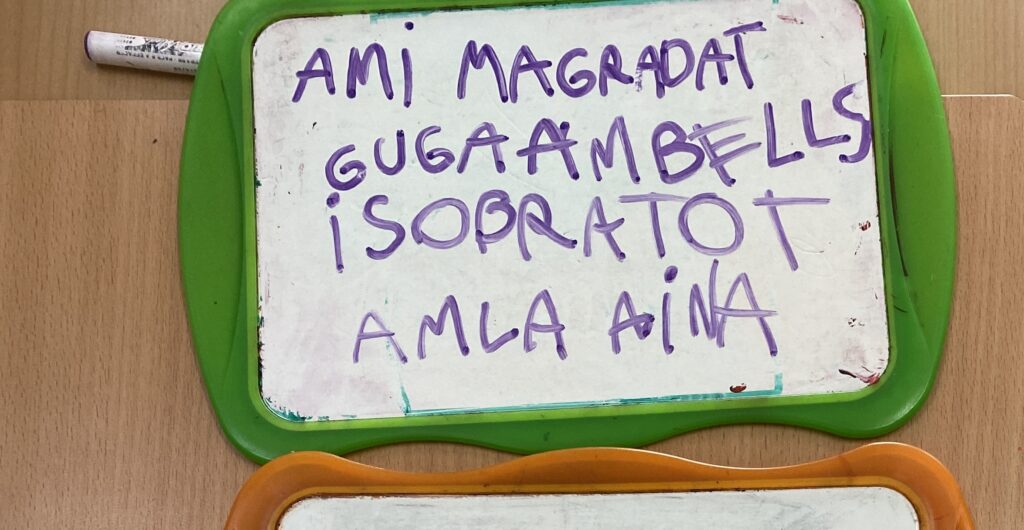 AMi MAGRADAT
GUGAAMBELLS
iSOBRATOT
AMLA AiNA